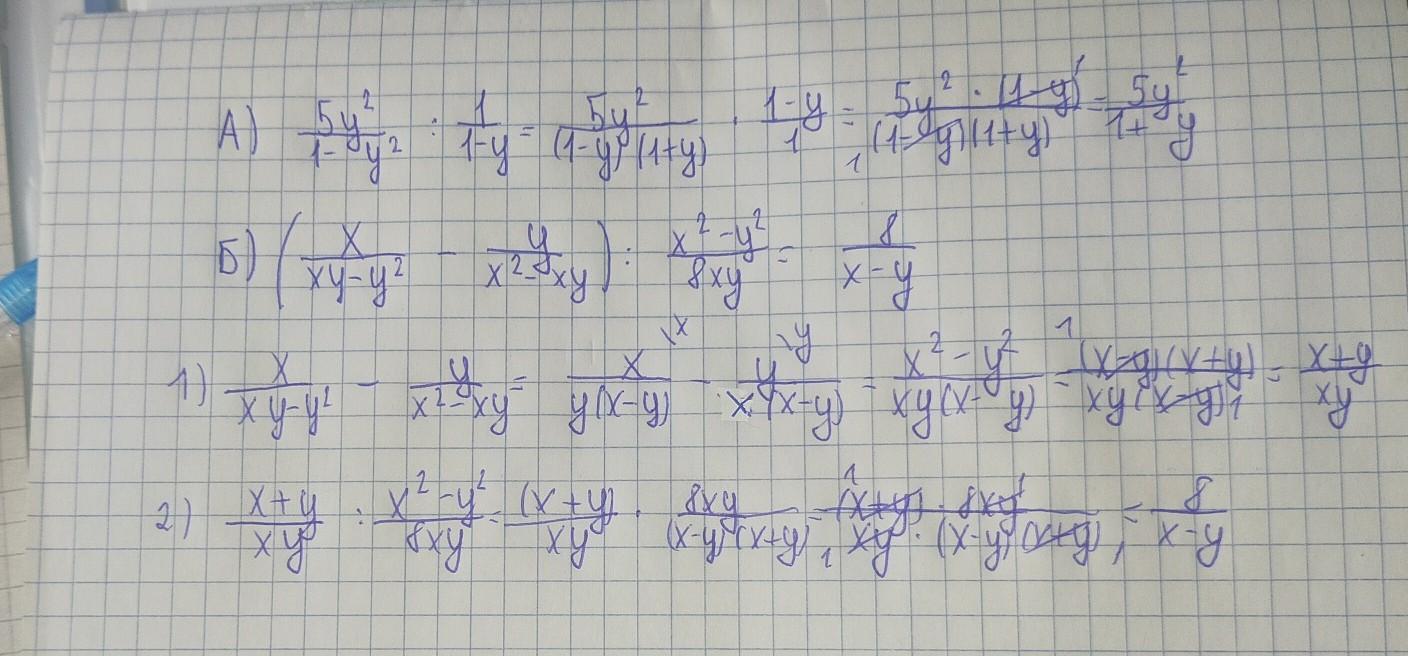 А) 5y²/(1-y²) : 1/(1-y) = 5y²/((1-y)(1+y)) · (1-y)/1 = (5y² · (1-y)¹)/(₁(1-y)(1+y)) = 5y²/(1+y)
Б) (x/(xy-y²) - y/(x²-xy)) : (x²-y²)/(8xy) = 8/(x-y)
1) x/(xy-y²) - y/(x²-xy) = x\x/(y(x-y)) - y\y/(x(x-y)) = (x²-y²)/(xy(x-y)) = ¹(x-y)(x+y)/(xy(x-y)₁) = (x+y)/(xy)
2) (x+y)/(xy) : (x²-y²)/(8xy) = (x+y)/(xy) · 8xy/((x-y)(x+y)) = (¹(x+y) · 8xy¹)/(₁xy · (x-y)(x+y)₁) = 8/(x-y)